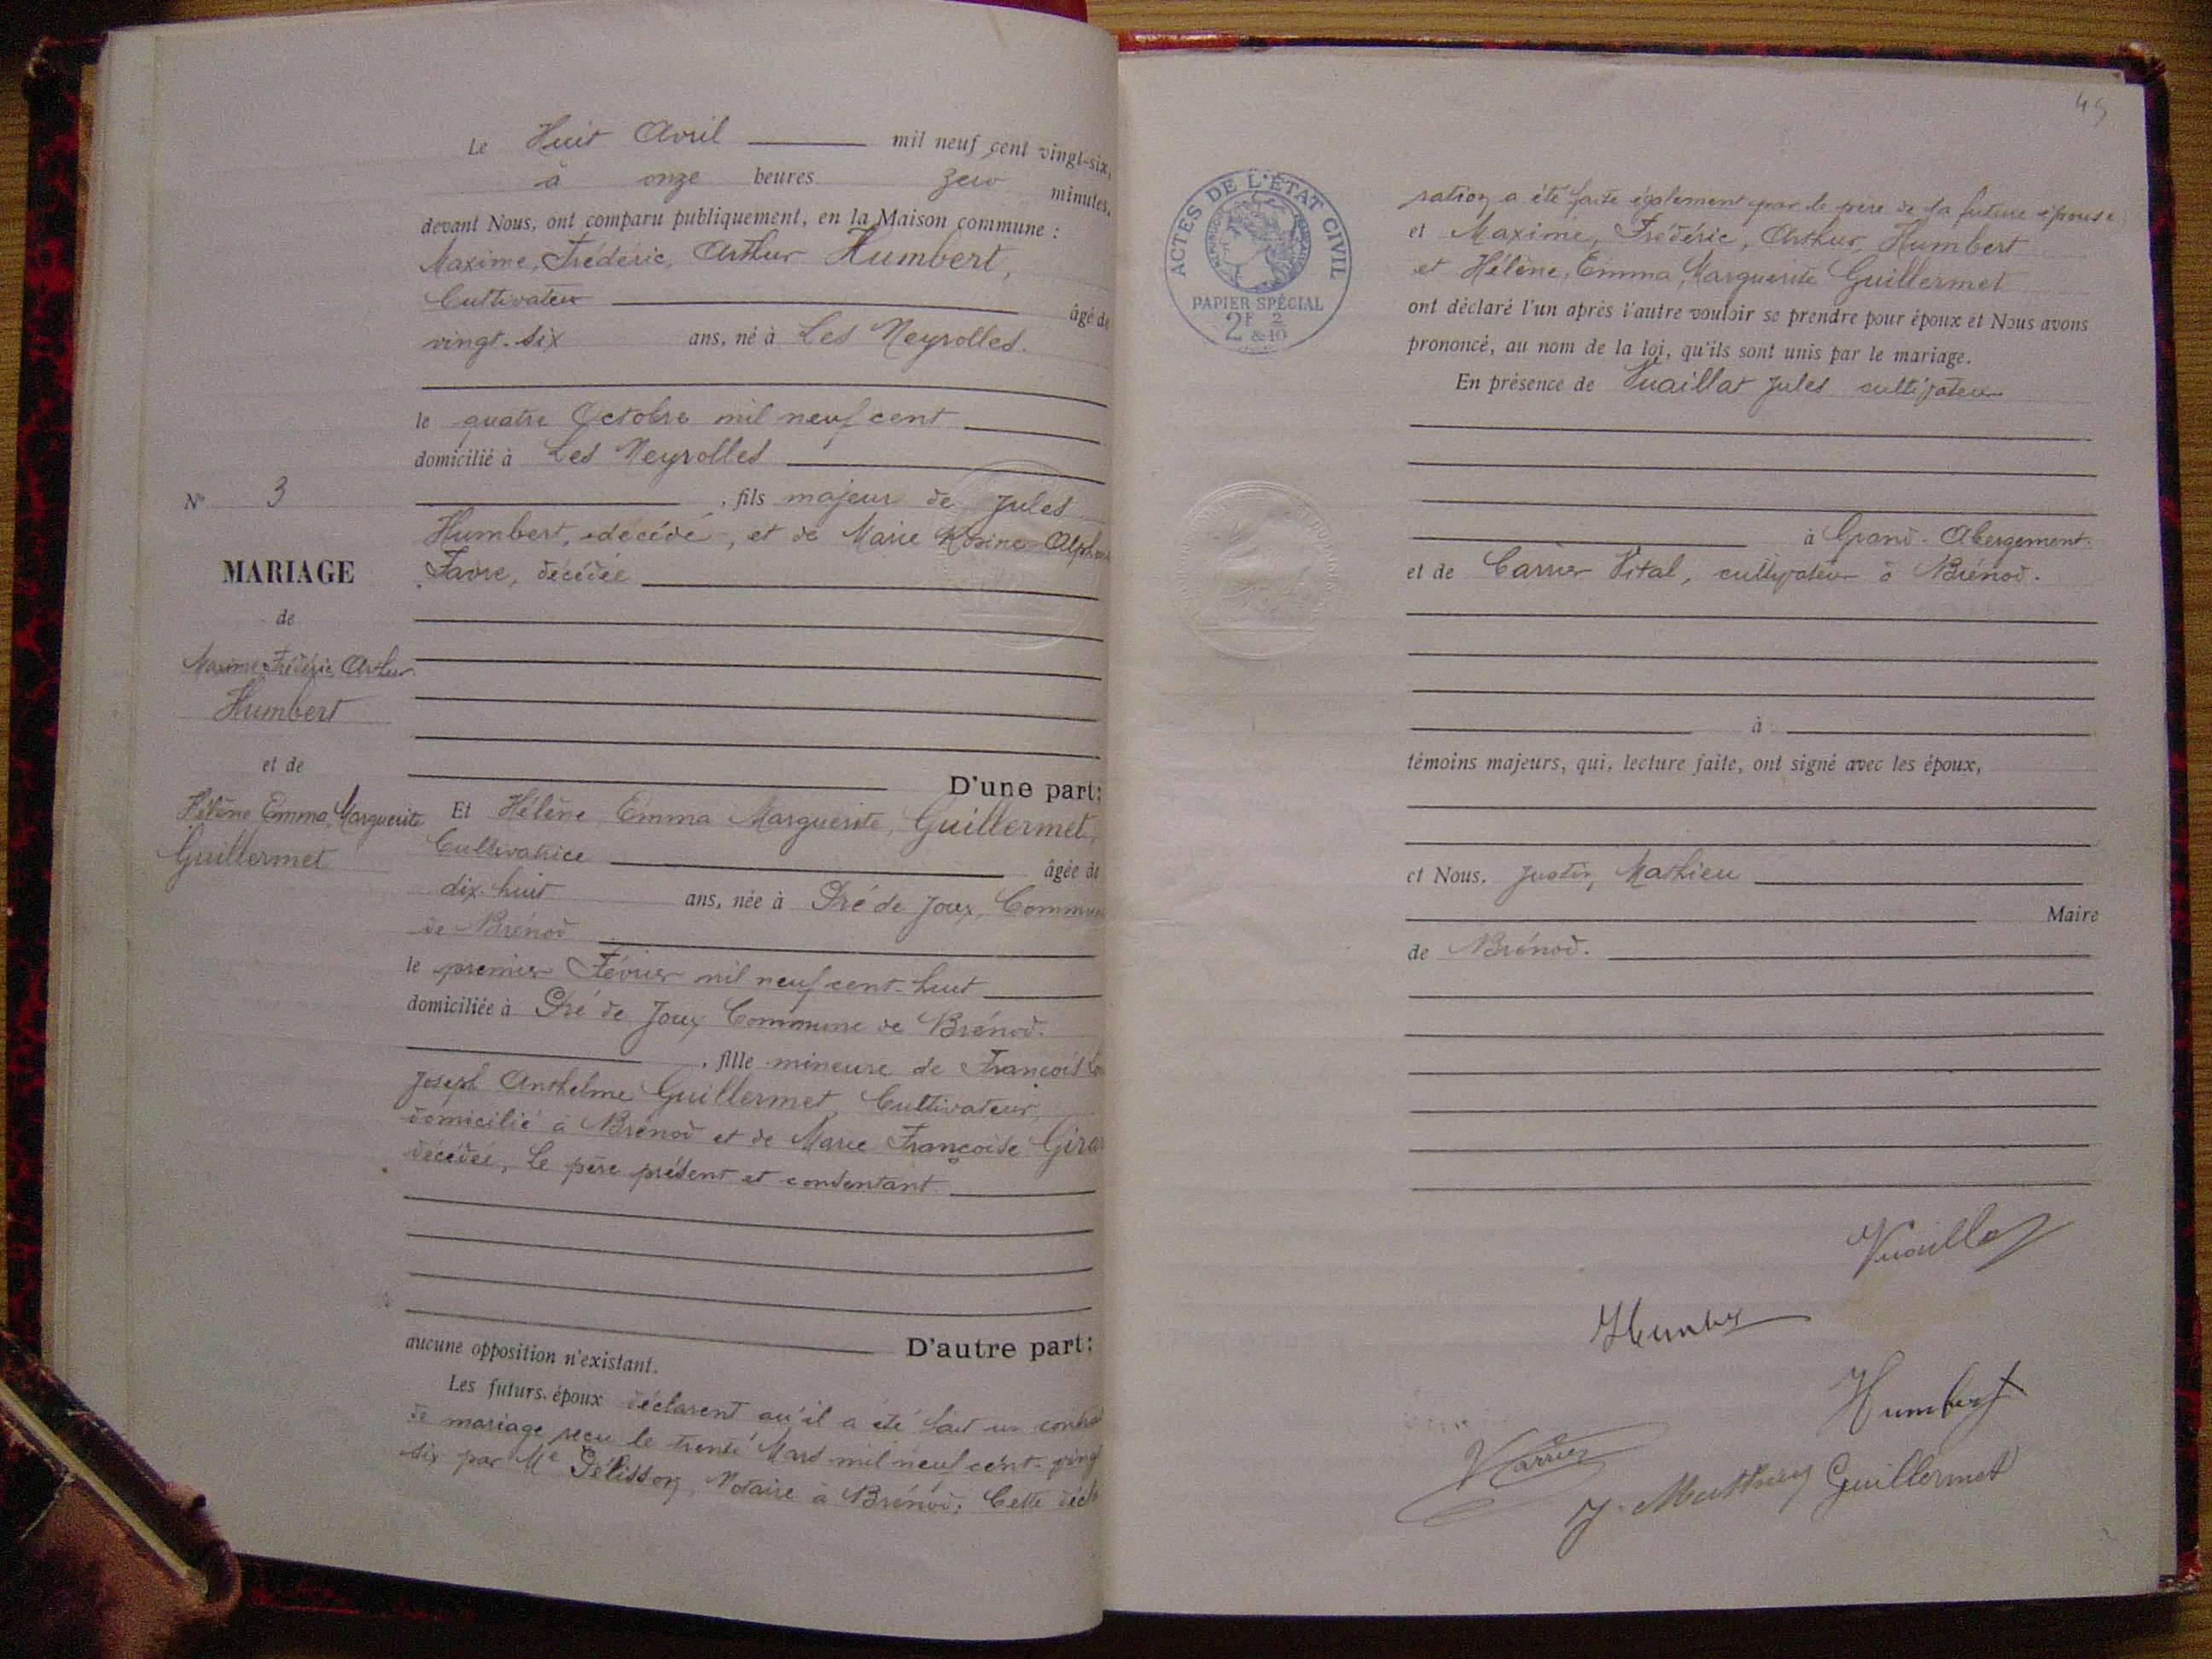 Le Huit Avril mil neuf cent vingt-six,
à onze heures zero minutes,
devant Nous, ont comparu publiquement, en la Maison commune :
Maxime, Frédéric, Arthur Humbert,
Cultivateur âgé de
vingt-six ans, né à Les Neyrolles.
le quatre Octobre mil neuf cent
domicilié à Les Neyrolles
N° 3
, fils majeur de Jules
Humbert, décédé, et de Marie Rosine
Favre, décédée
MARIAGE
de
Maxime Frédéric Arthur
Humbert
et de
Hélène Emma Marguerite
Guillermet
D'une part;
Et Hélène Emma Marguerite, Guillermet,
Cultivatrice âgée de
dix-huit ans, née à Pré de Joux, Commune
de Brénod
le premier Février mil neuf cent-huit
domiciliée à Pré de Joux Commune de Brénod.
, fille mineure de François
Joseph Anthelme Guillermet, Cultivateur,
domicilié à Brénod et de Marie Françoise
décédée, Le père présent et consentant
D'autre part;
aucune opposition n'existant.
Les futurs époux déclarent qu'il a été fait un contrat
de mariage reçu le trente Mars mil neuf cent-vingt
six par Me Pélisson, Notaire a Brénod; Cette décla
45
ACTES DE L'ÉTAT CIVIL
PAPIER SPÉCIAL
2F 2
&10
ration a été faite également par le père de la future épouse.
et Maxime, Frédéric, Arthur, Humbert
et Hélène, Emma, Marguerite Guillermet
ont déclaré l'un après l'autre vouloir se prendre pour époux et Nous avons
prononcé, au nom de la loi, qu'ils sont unis par le mariage.
En présence de Vuaillat Jules cultivateur
à Grand-Abergement.
et de Carrier Vital, cultivateur à Brénod.
à
témoins majeurs, qui, lecture faite, ont signé avec les époux,
et Nous, Justin, Mathieu
Maire
de Brénod.
Vuaillat
Humbert
Humbert
VCarrier
J. Mathieu Guillermet